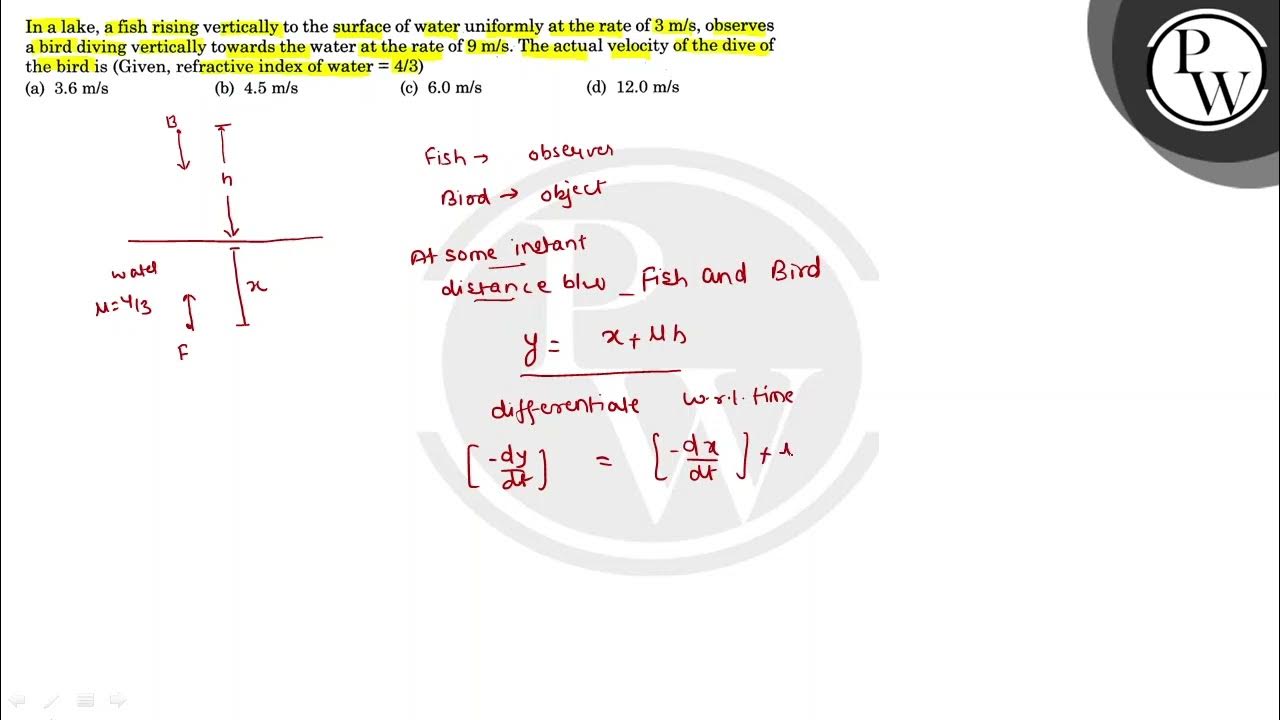 In a lake, a fish rising vertically to the surface of water uniformly at the rate of 3 m/s, observes
a bird diving vertically towards the water at the rate of 9 m/s. The actual velocity of the dive of
the bird is (Given, refractive index of water = 4/3)
(a) 3.6 m/s (b) 4.5 m/s (c) 6.0 m/s (d) 12.0 m/s
P
W
B
h
water
μ=4/3
x
F
Fish → observer
Bird → object
At some instant
distance b/w Fish and Bird
y = x + μh
differentiate w.r.t. time
[-dy/dt] = [-dx/dt] +
P
W